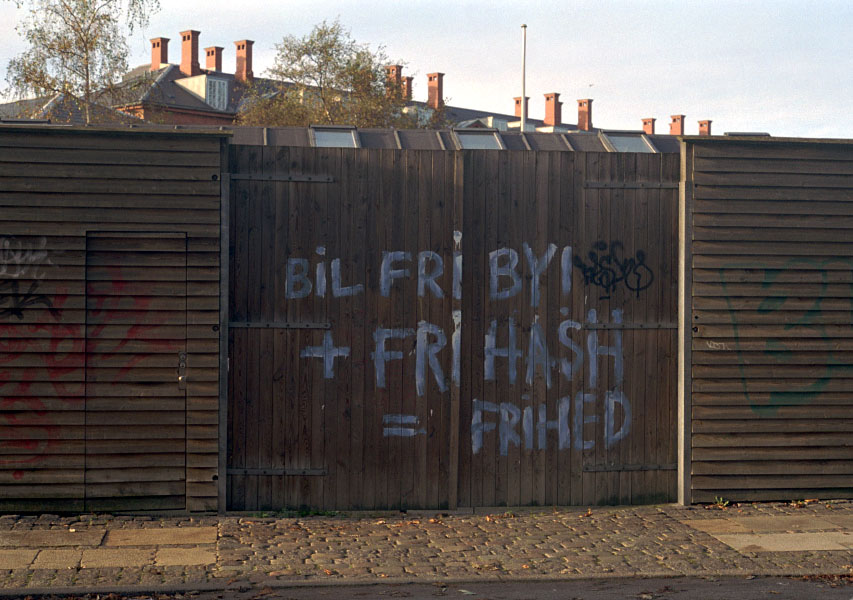 BIL FRI BY!
+ FRI HASH
= FRIHED